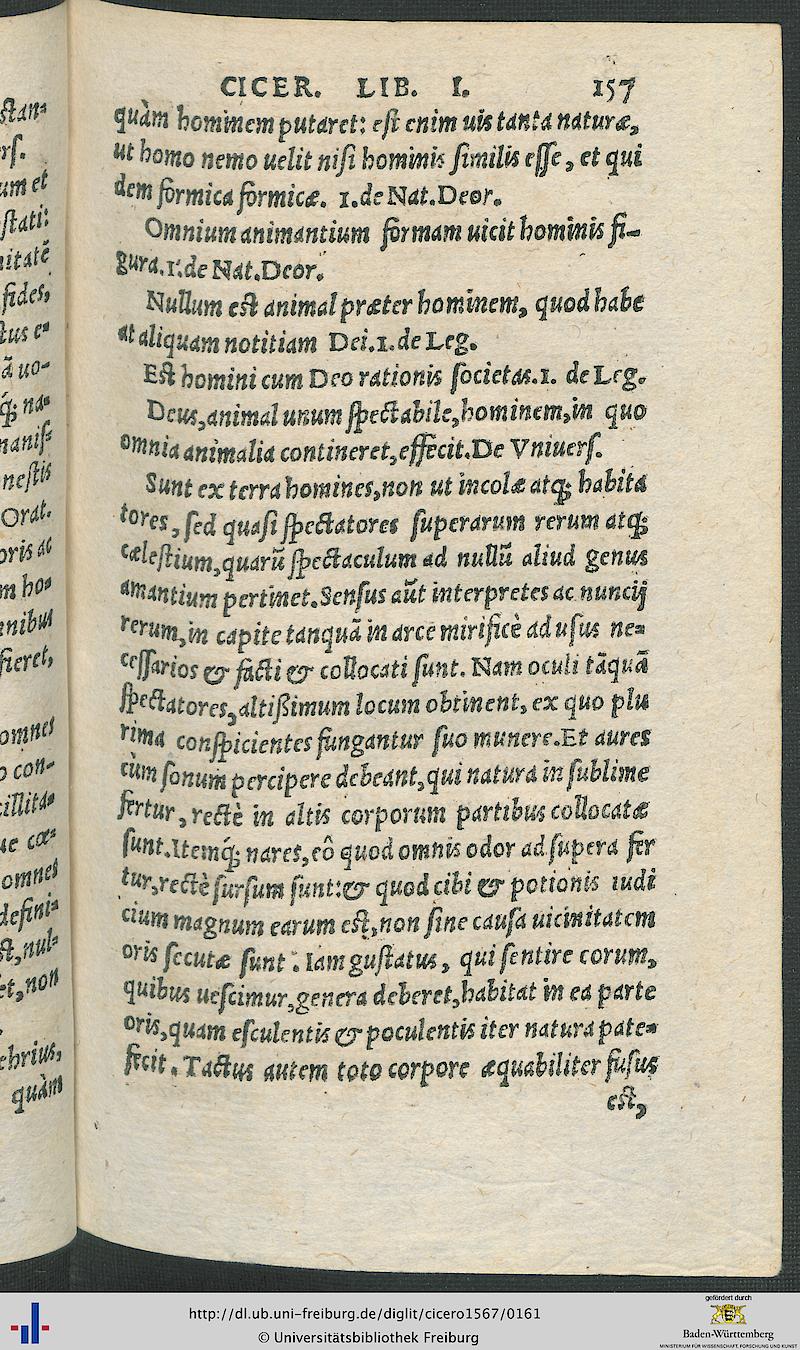 stan-
ers.
um et
stati:
nitatē
fides,
tus e-
ā uo-
q; na-
manis-
nestis
Orat.
oris ac
m ho-
nnibus
fieret,
omnes
o con-
cillita-
ue cœ-
omnes
defini-
st, nul-
et, non
ebrius,
quàm
CICER. LIB. I. 157
quàm hominem putaret: est enim uis tanta naturæ,
ut homo nemo uelit nisi hominis similis esse, et qui
dem formica formicæ. 1. de Nat. Deor.
Omnium animantium formam uicit hominis fi-
gura. 1. de Nat. Deor.
Nullum est animal præter hominem, quod habe
at aliquam notitiam Dei. 1. de Leg.
Est homini cum Deo rationis societas. 1. de Leg.
Deus, animal unum spectabile, hominem, in quo
omnia animalia contineret, effecit. De Vniuers.
Sunt ex terra homines, non ut incolæ atq; habita
tores, sed quasi spectatores superarum rerum atq;
cælestium, quarū spectaculum ad nullū aliud genus
amantium pertinet. Sensus aūt interpretes ac nuncij
rerum, in capite tanquā in arce mirificè ad usus ne-
cessarios & facti & collocati sunt. Nam oculi tāquā
spectatores, altißimum locum obtinent, ex quo plu
rima conspicientes fungantur suo munere. Et aures
cùm sonum percipere debeant, qui natura in sublime
fertur, rectè in altis corporum partibus collocatæ
sunt. Itemq; nares, eô quod omnis odor ad supera fer
tur, rectè sursum sunt: & quod cibi & potionis iudi
cium magnum earum est, non sine causa uicinitatem
oris secutæ sunt. Iam gustatus, qui sentire eorum,
quibus uescimur, genera deberet, habitat in ea parte
oris, quam esculentis & poculentis iter natura pate-
fecit. Tactus autem toto corpore æquabiliter fusus
est,
http://dl.ub.uni-freiburg.de/diglit/cicero1567/0161
© Universitätsbibliothek Freiburg
gefördert durch
Baden-Württemberg
MINISTERIUM FÜR WISSENSCHAFT, FORSCHUNG UND KUNST